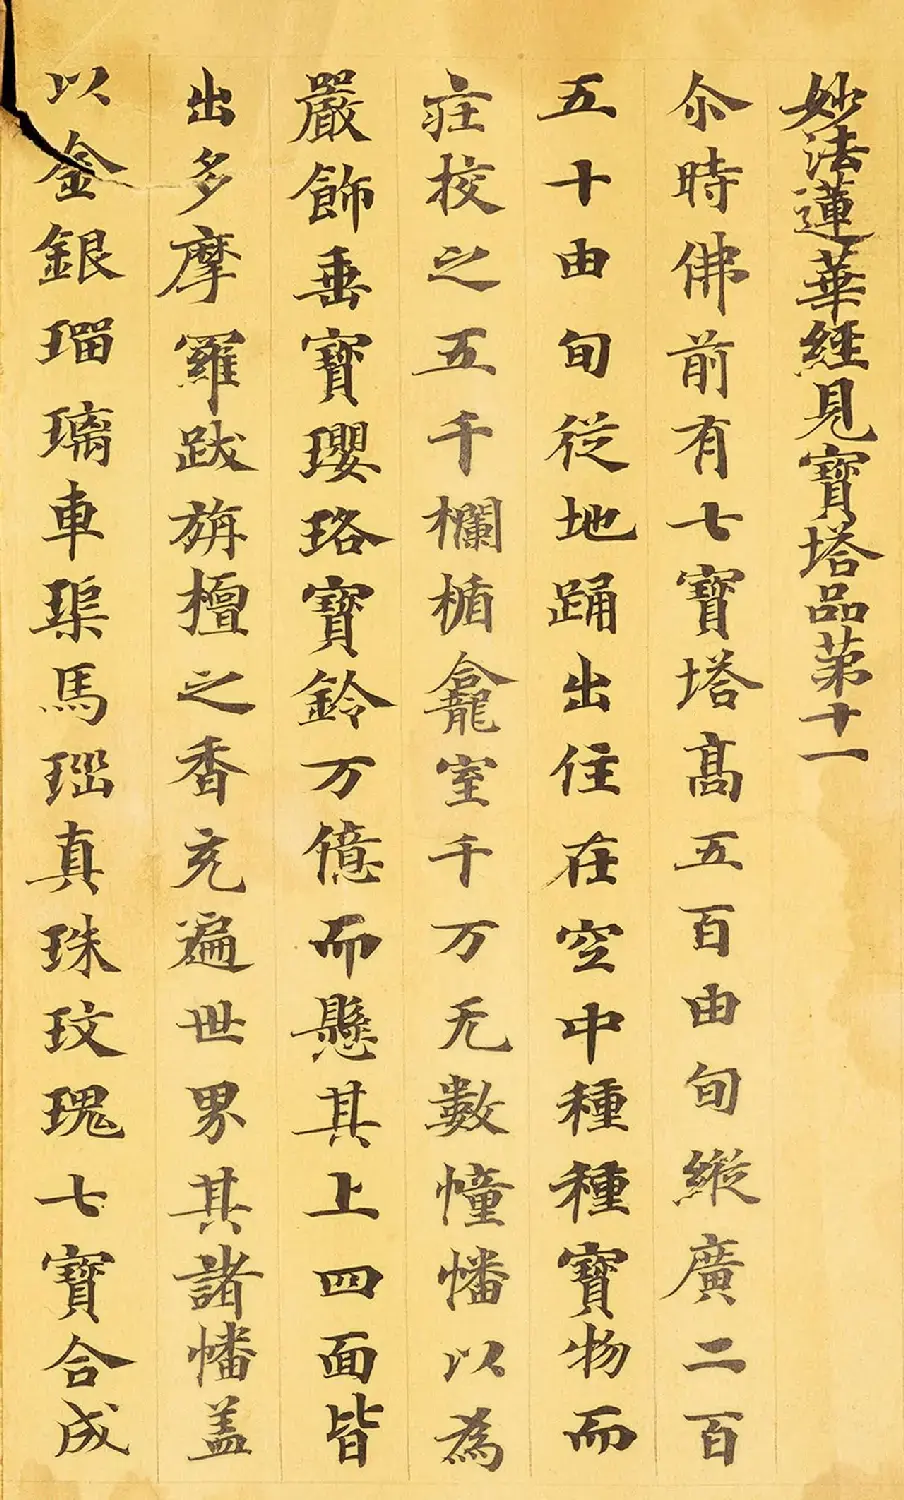 妙法蓮華經見寶塔品苐十一
尒時佛前有七寶塔髙五百由旬縱廣二百
五十由旬從地踊出住在空中種種寶物而
庄校之五千欄楯龕室千万无數幢幡以為
嚴飾垂寶瓔珞寶鈴万億而懸其上四面皆
出多摩羅跋旃檀之香充遍世界其諸幡盖
以金銀瑠璃車璖馬瑙真珠玟瑰七寶合成